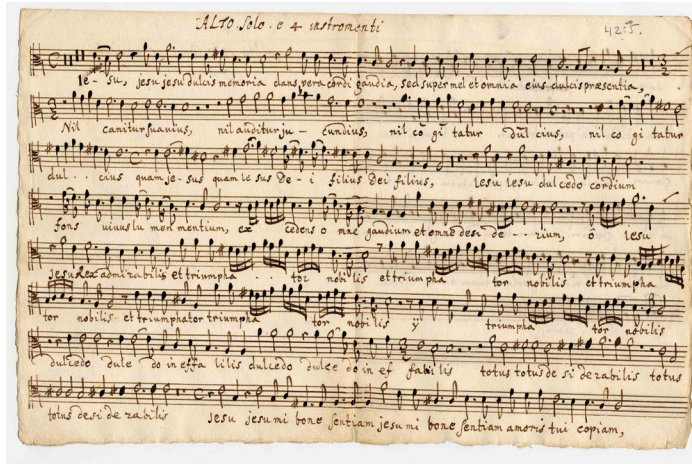 ALTO. Solo. e 4 instromenti
42:5.
Ie - su, jesu jesu dulcis memoria dans vera cordi gaudia, sed super mel et omnia eius dulcis præsentia,
Nil canitur suavius, nil auditur ju - cundius, nil co gi tatur dul cius, nil co gi tatur
dul . . cius quam je - sus quam Ie sus De - i filius Dei filius, Iesu Iesu dulcedo cordium
fons vivus lu men mentium, ex cedens o mne gaudium et omne desi de - - rium, ô Iesu
Jesu Rex admirabilis et triumpha . . . tor nobilis et triumpha tor nobilis et triumpha
tor nobilis et triumphator triumpha tor nobilis ÿ triumpha tor nobilis
dulcedo dulce do in effa bilis dulcedo dulce do in ef fabilis totus totus de si de rabilis totus
totus desi de rabilis Jesu jesu mi bone sentiam jesu mi bone sentiam amoris tui copiam,